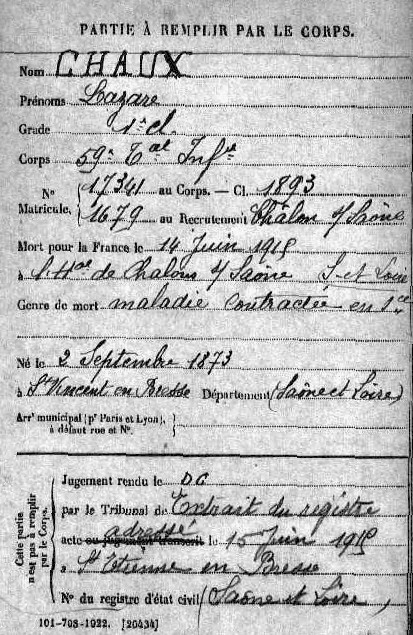 PARTIE À REMPLIR PAR LE CORPS.
Nom CHAUX
Prénoms Lazare
Grade 1e cl.
Corps 59e Tal Infie
N° Matricule. 17341 au Corps. — Cl. 1893
1679 au Recrutement Châlon s/ Saône
Mort pour la France le 14 Juin 1915
à l'Hal de Chalons s/ Saône S. et Loire
Genre de mort maladie contractée en Sce
Né le 2 Septembre 1873
à St Vincent en Bresse Département (Saône et Loire)
Arrt municipal (pr Paris et Lyon),
à défaut rue et N°.
Cette partie n'est pas à remplir par le Corps.
Jugement rendu le D C
par le Tribunal de Extrait du registre
adressé
acte ou jugement transcrit le 15 Juin 1915
à St Etienne en Bresse
N° du registre d'état civil (Saône et Loire)
101-708-1922. [20434]